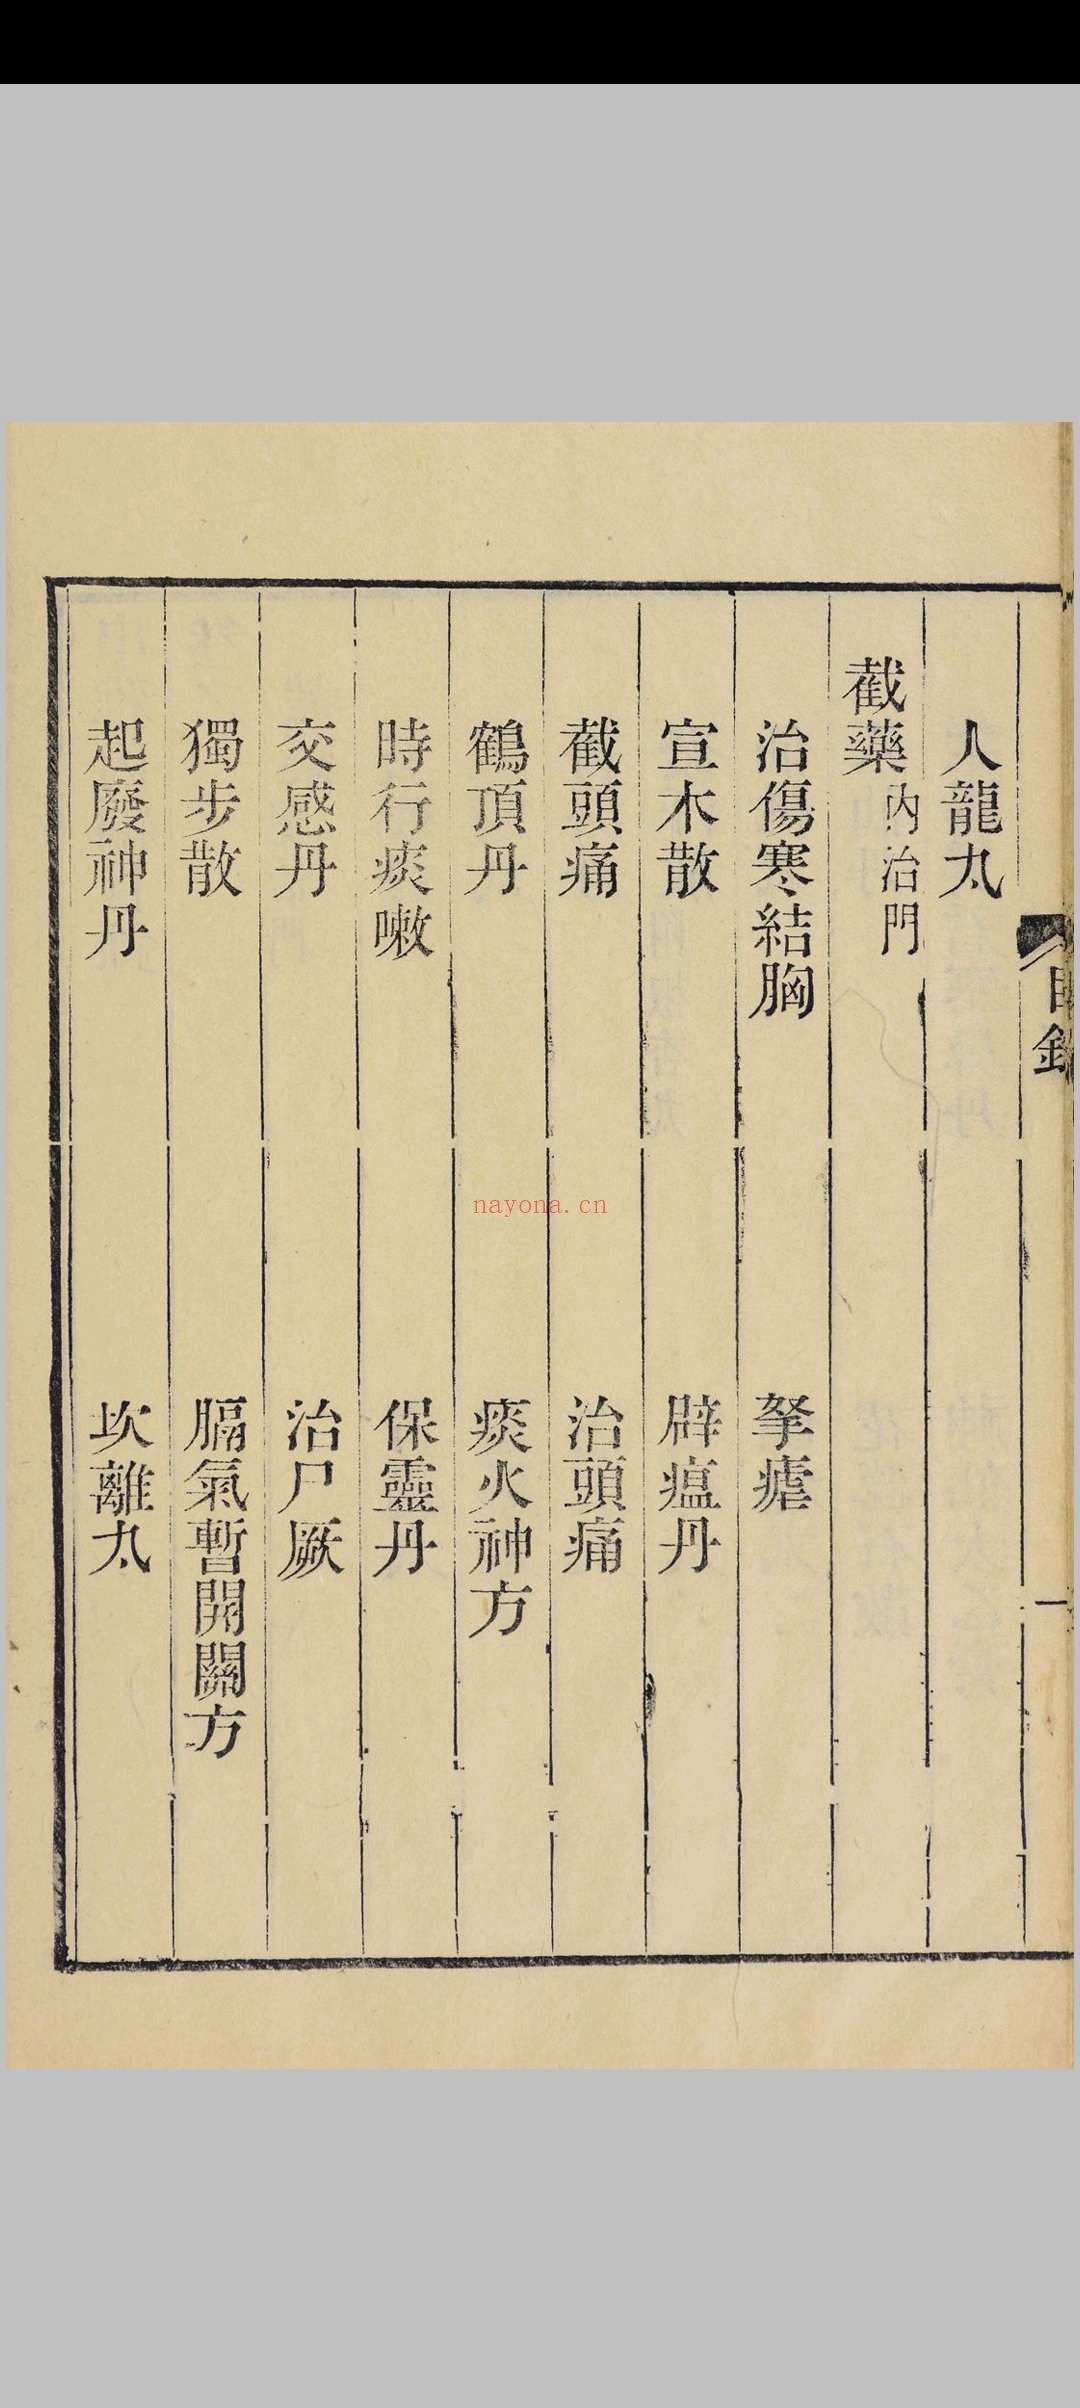 目錄
一
人龍丸
截藥 內治門
治傷寒結胸 拏瘧
宣木散 辟瘟丹
截頭痛 治頭痛
鶴頂丹 痰火神方
時行痰嗽 保靈丹
交感丹 治尸厥
獨步散 膈氣暫開關方
起廢神丹 坎離丸
nayona.cn